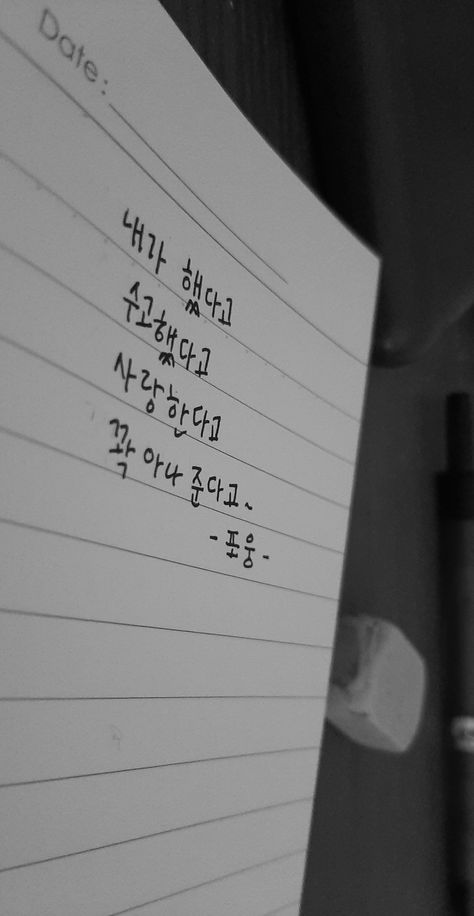 Date:
내가 했다고
수고했다고
사랑한다고
꽉 아나 준다고~
-포옹-